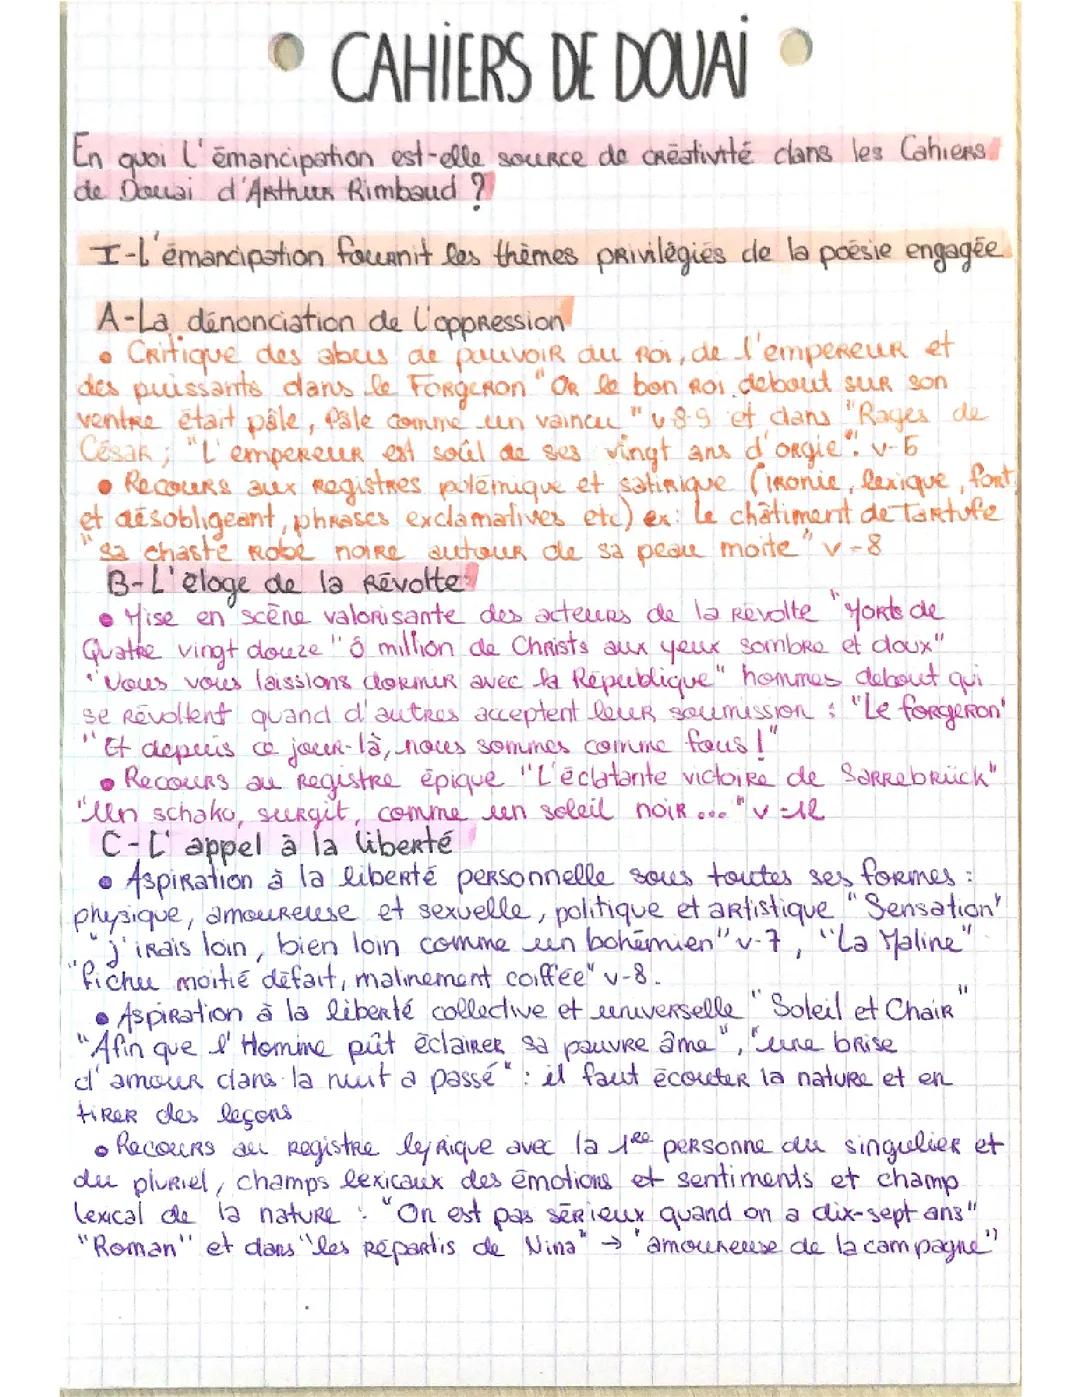 CAHIERS DE DOUAI
En quoi l'émancipation est-elle source de créativité dans les Cahiers
de Douai d'Arthur Rimbaud ?
I-L'émancipation fournit les thèmes privilégiés de la poésie engagée
A-La dénonciation de l'oppression
• Critique des abus de pouvoir du Roi, de l'empereur et
des puissants dans le Forgeron "Or le bon Roi debout sur son
ventre était pâle, Pâle comme un vaincu" v 8-9 et dans "Rages de
César ; "L'empereur est soûl de ses vingt ans d'orgie". v-5
• Recours aux registres polémique et satirique (ironie, lexique, fort
et désobligeant, phrases exclamatives etc) ex: Le châtiment de Tartufe
"sa chaste Robe noire autour de sa peau moite" v-8
B-L'éloge de la Révolte:
• Mise en scène valorisante des acteurs de la Révolte "Morts de
Quatre vingt douze" "ô million de Christs aux yeux sombre et doux"
"Nous vous laissions dormir avec la République" hommes debout qui
se révoltent quand d'autres acceptent leur soumission : "Le forgeron"
"Et depuis ce jour-là, nous sommes comme fous !"
• Recours au Registre épique "L'éclatante victoire de Sarrebrück"
"Un schako, surgit, comme un soleil noir..." v-12
C-L'appel à la liberté
• Aspiration à la liberté personnelle sous toutes ses formes :
physique, amoureuse et sexuelle, politique et artistique "Sensation"
"j'irais loin, bien loin comme un bohémien" v-7, "La Maline"
"fichu moitié défait, malinement coiffée" v-8.
• Aspiration à la liberté collective et universelle "Soleil et Chair"
"Afin que l'Homme pût éclairer sa pauvre âme", "une brise
d'amour dans la nuit a passé" : il faut écouter la nature et en
tirer des leçons
• Recours au registre lyrique avec la 1re personne du singulier et
du pluriel, champs lexicaux des émotions et sentiments et champ
lexical de la nature : "On est pas sérieux quand on a dix-sept ans"
"Roman" et dans "les répartis de Nina" → "amoureuse de la campagne"